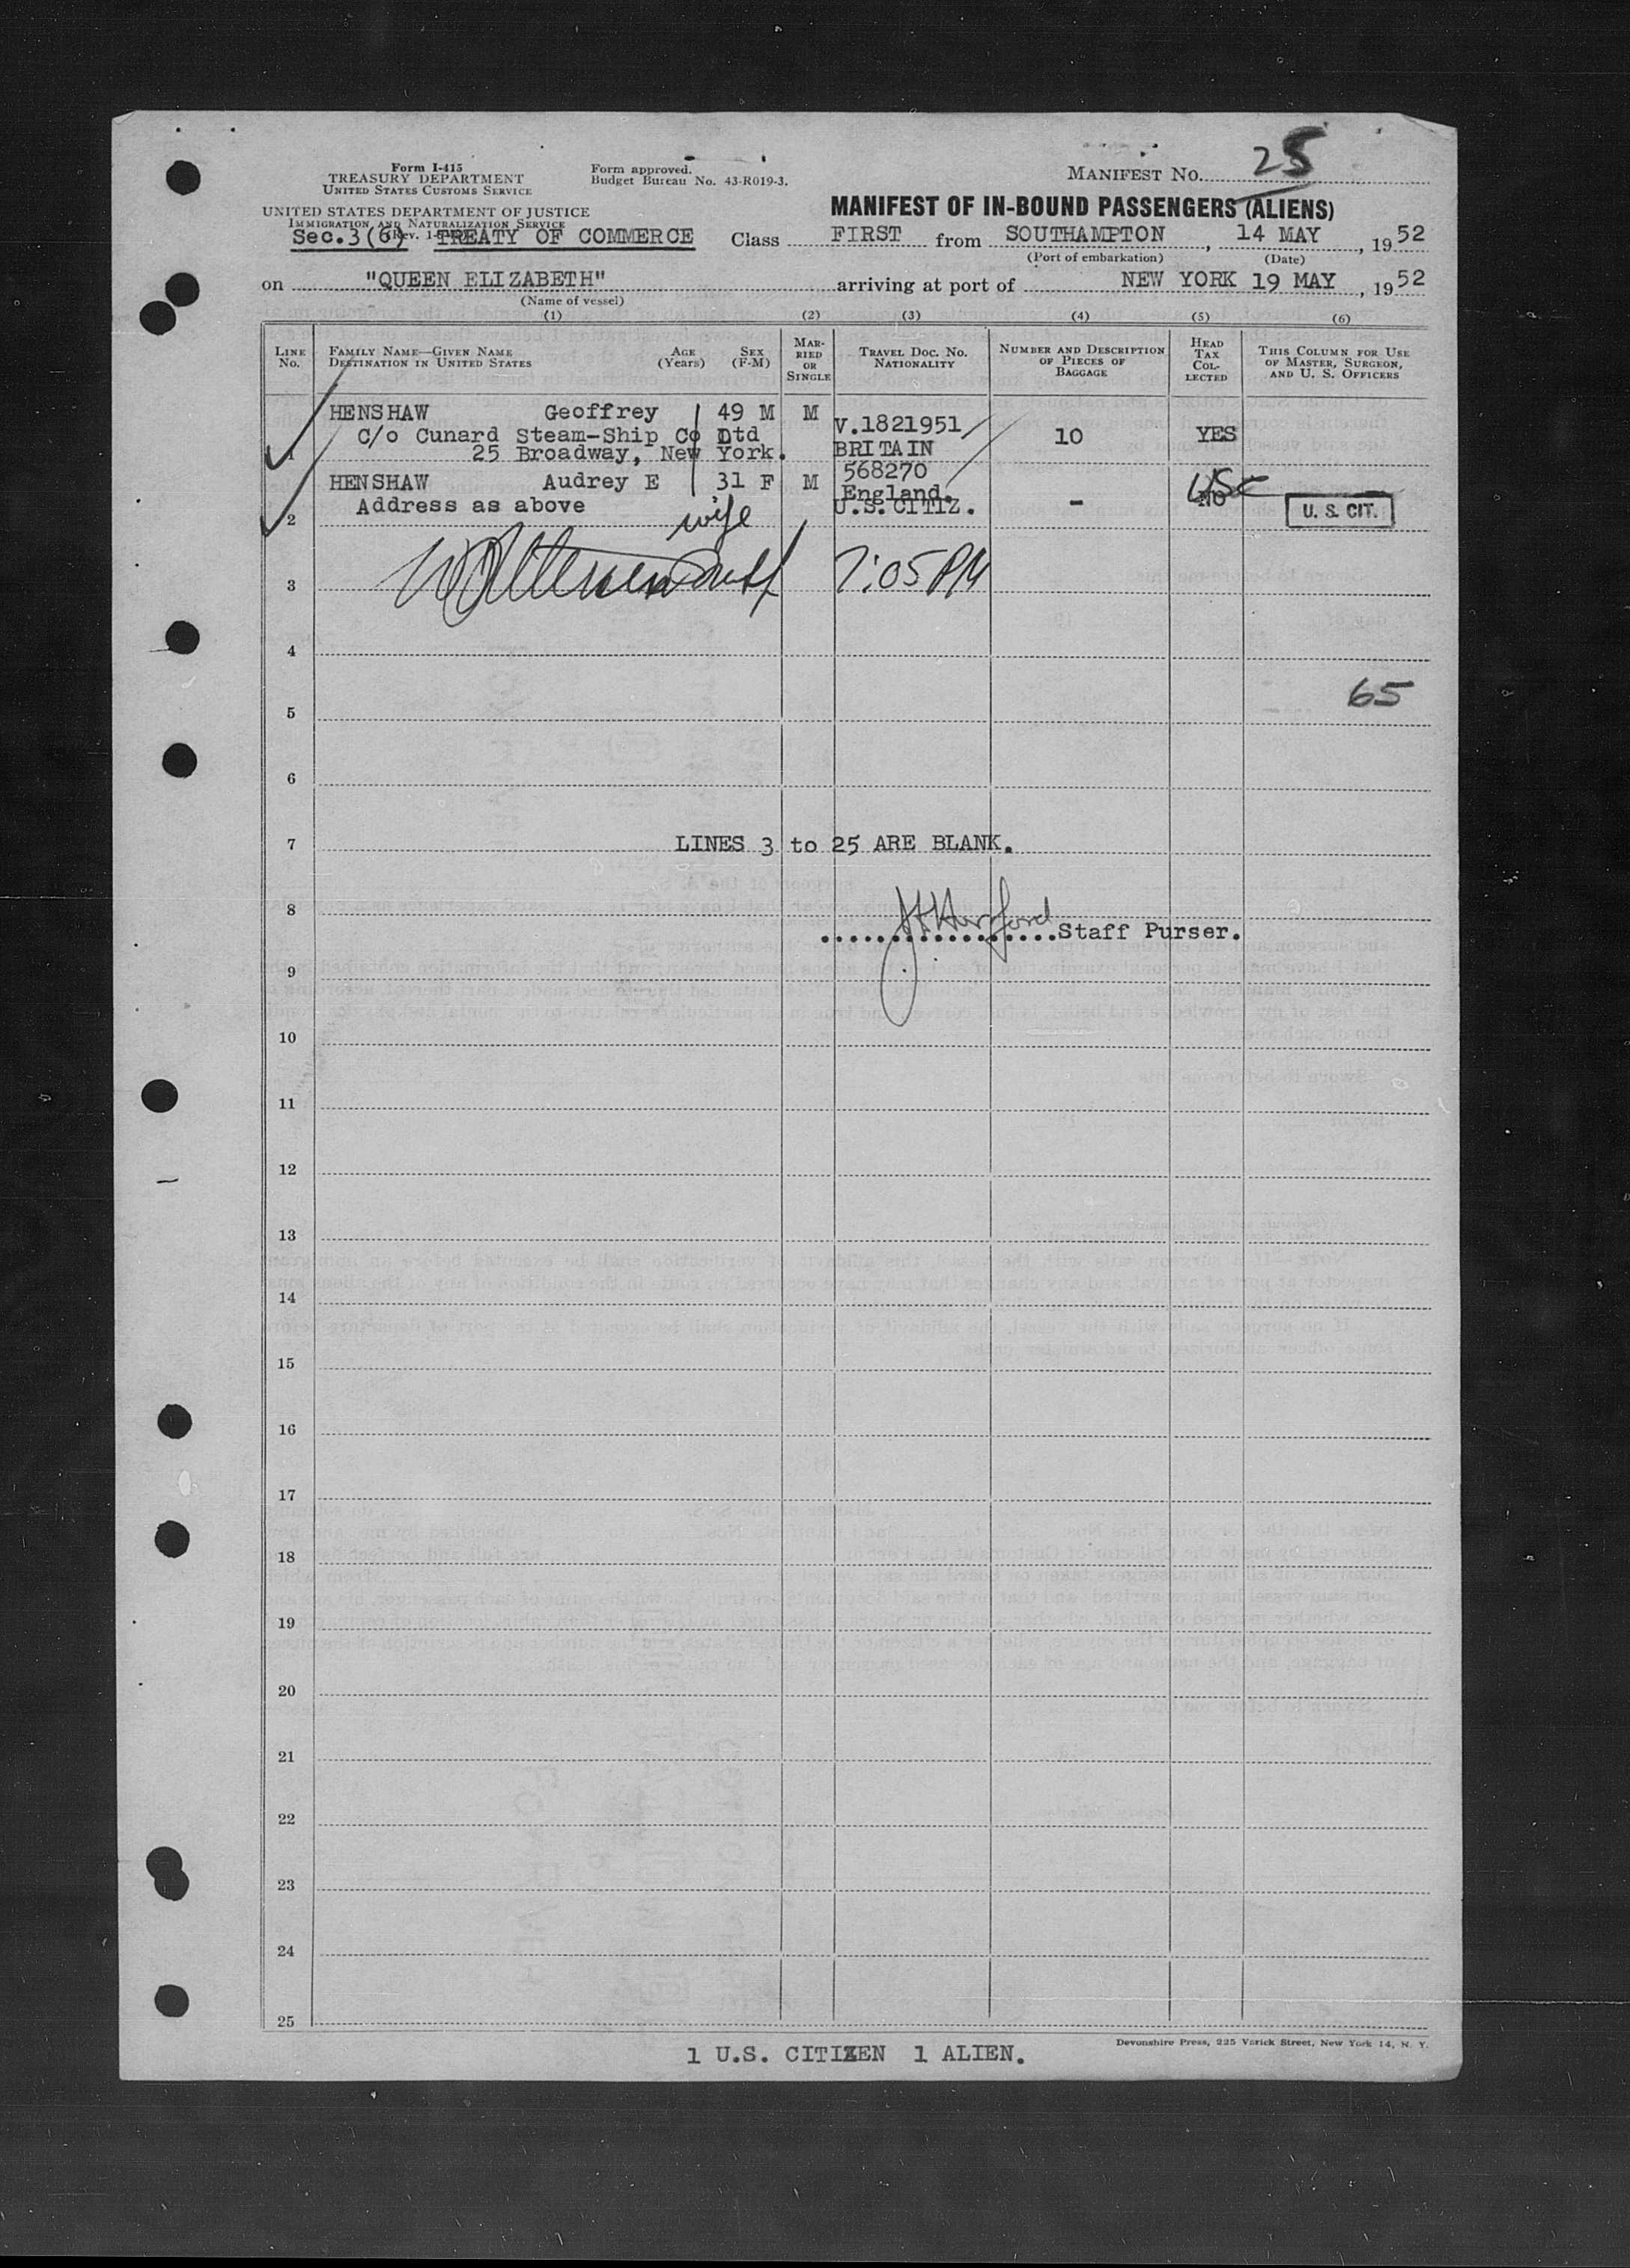 Form I-415
TREASURY DEPARTMENT
UNITED STATES CUSTOMS SERVICE
Form approved.
Budget Bureau No. 43-R019-3.
MANIFEST NO. 25
UNITED STATES DEPARTMENT OF JUSTICE
IMMIGRATION AND NATURALIZATION SERVICE
MANIFEST OF IN-BOUND PASSENGERS (ALIENS)
Sec.3(6) TREATY OF COMMERCE Class FIRST from SOUTHAMPTON, 14 MAY, 1952
(Port of embarkation) (Date)
on "QUEEN ELIZABETH" arriving at port of NEW YORK 19 MAY, 1952
(Name of vessel)
(1) (2) (3) (4) (5) (6)
LINE NO.
FAMILY NAME—GIVEN NAME
DESTINATION IN UNITED STATES
AGE (Years)
SEX (F-M)
MARRIED OR SINGLE
TRAVEL DOC. NO. NATIONALITY
NUMBER AND DESCRIPTION OF PIECES OF BAGGAGE
HEAD TAX COLLECTED
THIS COLUMN FOR USE OF MASTER, SURGEON, AND U. S. OFFICERS
HENSHAW Geoffrey 49 M M V.1821951
C/o Cunard Steam-Ship Co Ltd BRITAIN 10 YES
25 Broadway, New York.
HENSHAW Audrey E 31 F M 568270
England.
2 Address as above wife U.S.CITIZ. - NO USC U. S. CIT.
3 7:05 PM
4
65
5
6
7 LINES 3 to 25 ARE BLANK.
8
Staff Purser.
9
10
11
12
13
14
15
16
17
18
19
20
21
22
23
24
25
Devonshire Press, 225 Varick Street, New York 14, N. Y.
1 U.S. CITIZEN 1 ALIEN.